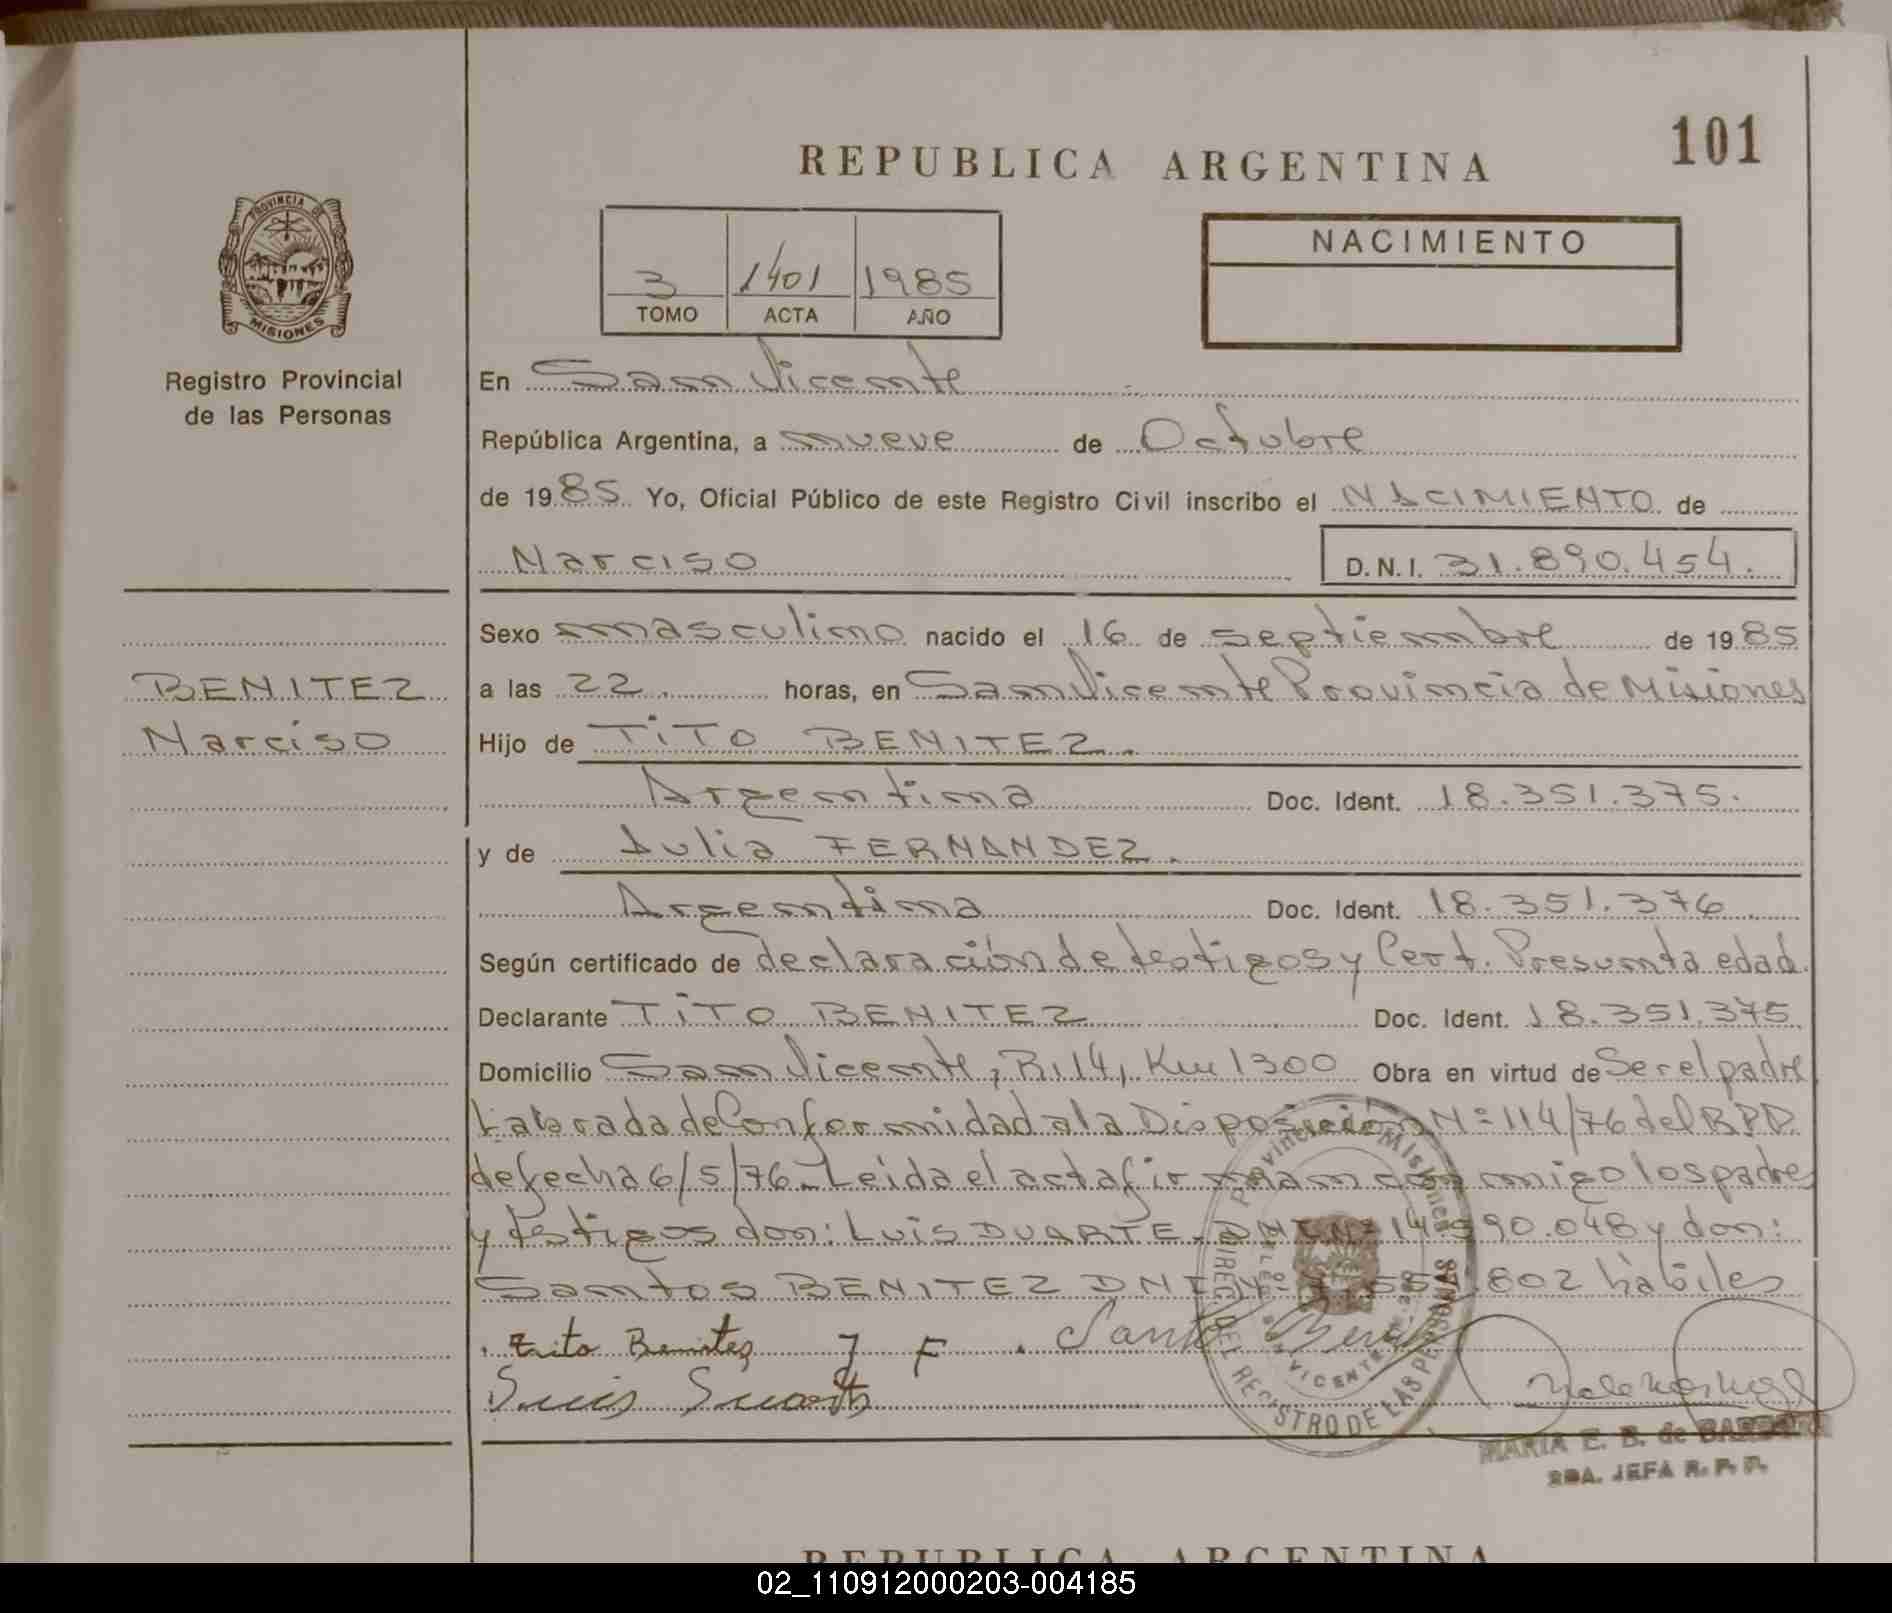 101
REPUBLICA ARGENTINA
PROVINCIA DE
MISIONES
Registro Provincial
de las Personas
3 1401 1985
TOMO ACTA AÑO
NACIMIENTO
En San Vicente
República Argentina, a nueve de Octubre
de 1985 Yo, Oficial Público de este Registro Civil inscribo el NACIMIENTO de
Narciso D.N.I. 31.890.454.
Sexo masculino nacido el 16 de septiembre de 1985
BENITEZ
Narciso
a las 22. horas, en San Vicente Provincia de Misiones
Hijo de TiTO BENITEZ.
Argentina Doc. Ident. 18.351.375.
y de Julia FERNANDEZ.
Argentina Doc. Ident. 18.351.376
Según certificado de declaración de testigos y Cert. Presunta edad.
Declarante TiTO BENITEZ Doc. Ident. 18.351.375
Domicilio San Vicente, R.14, Km 1300 Obra en virtud de Ser el padre
Labrada de Conformidad a la Disposición Nº 114/76 del R.P.P.
de fecha 6/5/76_ Leída el acta firman conmigo los padres
y testigos don: Luis DUARTE_ DNI Nº 14.990.048 y don:
Santos BENITEZ DNI Nº 802 hábiles
Tito Benitez J F. Santo Beni
Luis Duarte
Provincia de Misiones
DIREC. DEL REGISTRO DE LAS PERSONAS
SAN VICENTE
MARIA E. B. de BARBOZA
SDA. JEFA R. P. P.
REPUBLICA ARGENTINA
02_110912000203-004185